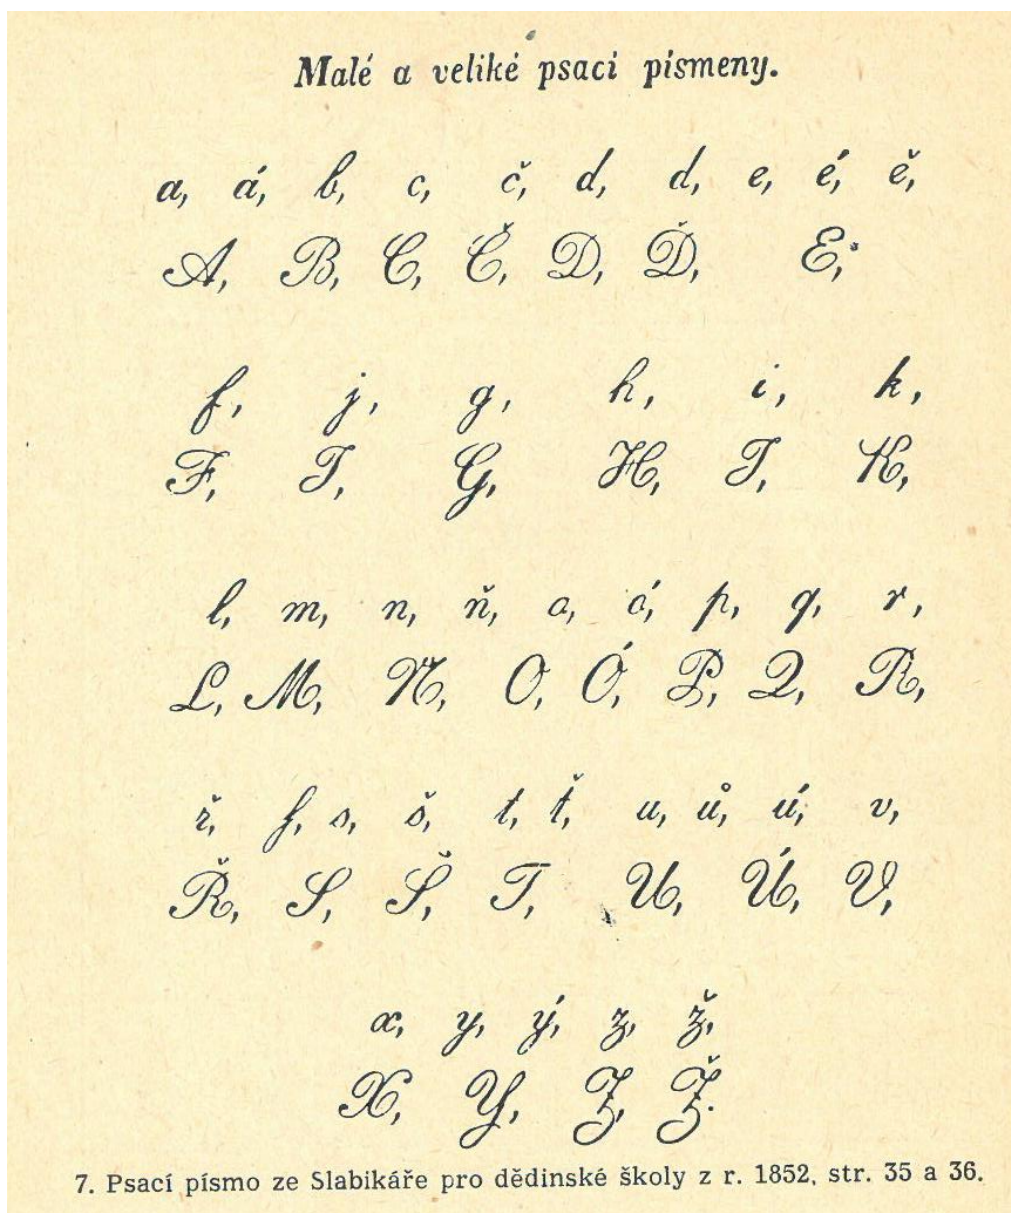 Malé a veliké psací písmeny.
a, á, b, c, č, d, d, e, é, ě,
A, B, C, Č, D, Ď, E,
f, j, g, h, i, k,
F, J, G, H, I, K,
l, m, n, ň, o, ó, p, q, r,
L, M, N, O, Ó, P, Q, R,
ř, ſ, s, š, t, ť, u, ů, ú, v,
Ř, S, Š, T, U, Ú, V,
x, y, ý, z, ž,
X, Y, Z, Ž.
7. Psací písmo ze Slabikáře pro dědinské školy z r. 1852, str. 35 a 36.